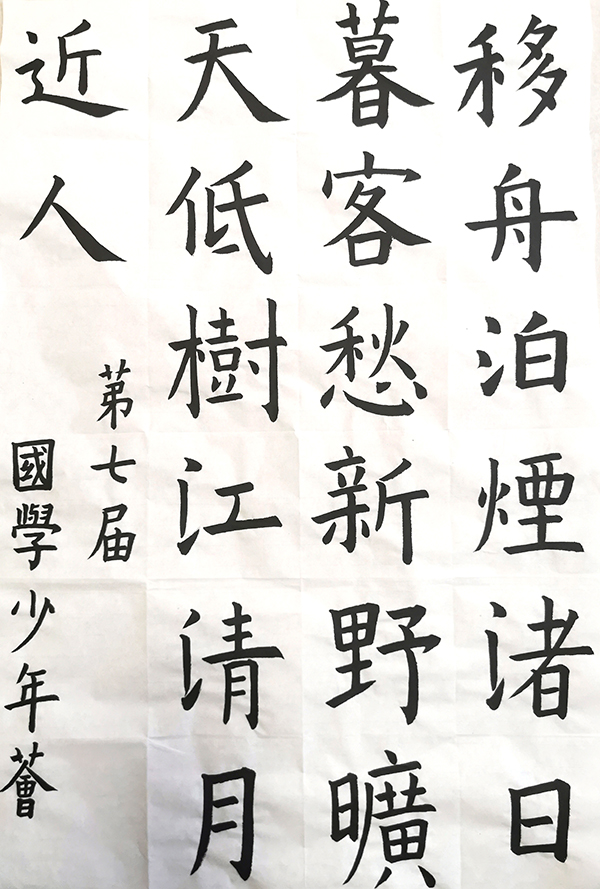 移舟泊煙渚日
暮客愁新野曠
天低樹江清月
近人
第七届
國學少年薈